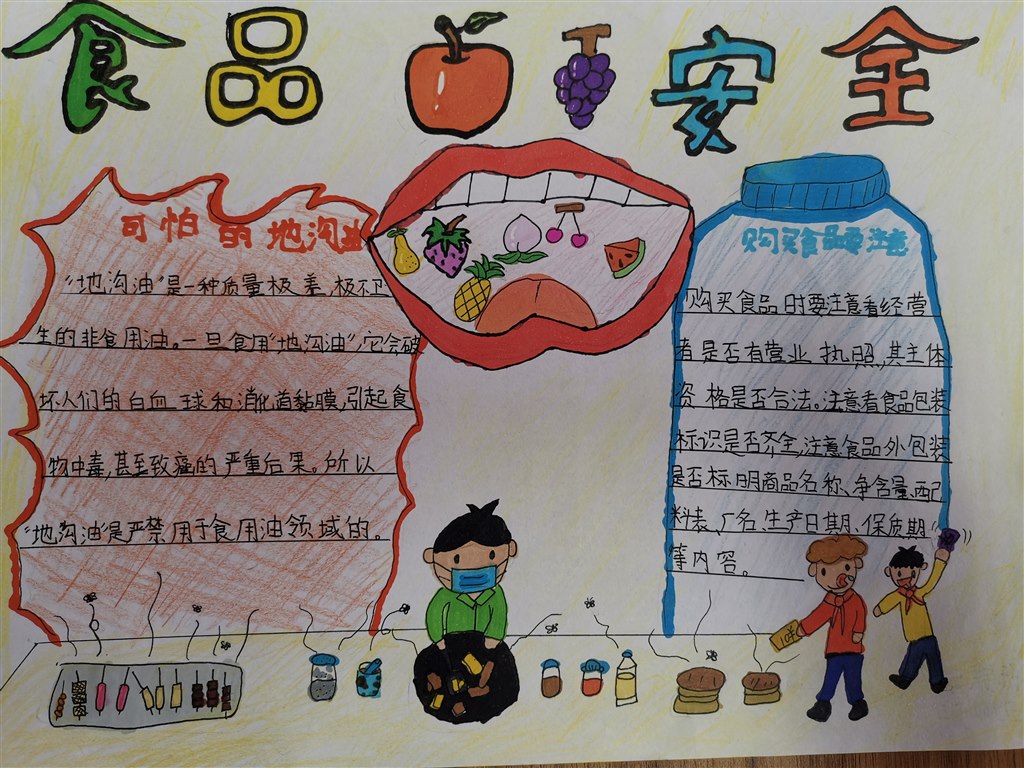 食品安全
可怕的地沟油
"地沟油"是一种质量极差,极不卫
生的非食用油。一旦食用"地沟油",它会破
坏人们的白血球和消化道黏膜,引起食
物中毒,甚至致癌的严重后果。所以
"地沟油"是严禁用于食用油领域的。
购买食品要注意
购买食品时要注意看经营
者是否有营业执照,其主体
资格是否合法。注意看食品包装
标识是否齐全,注意食品外包装
是否标明商品名称、净含量、配
料表、厂名、生产日期、保质期
等内容。
10元